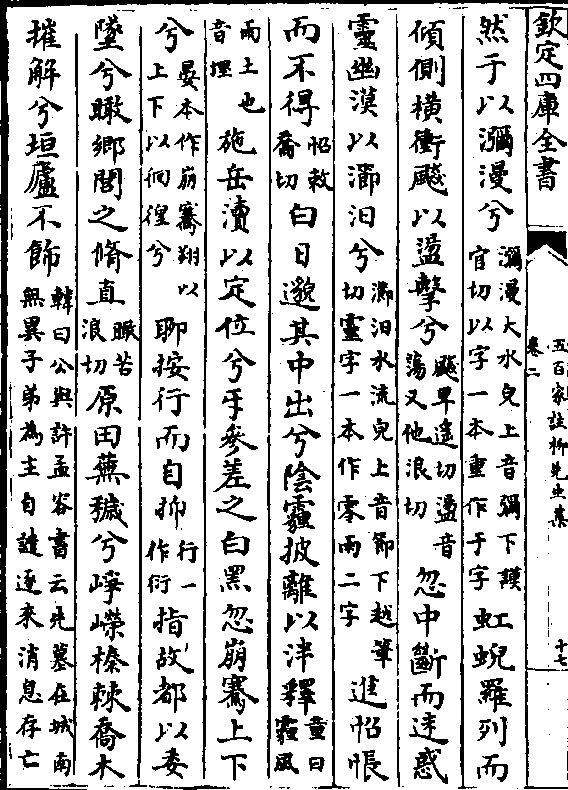 欽定四庫全書
五百家註柳先生集
卷二
十七
然于以瀰漫兮瀰漫大水皃上音彌下謨官切以字一本重作于字虹蜺羅列而
傾側橫衝飈以盪擊兮飈卑遙切盪音蕩又他浪切忽中斷而迷惑
靈幽漠以瀄汩兮瀄汩水流皃上音節下越筆切靈字一本作零雨二字進怊悵
而不得怊敕喬切白日邈其中出兮陰霾披離以泮釋童曰霾風
雨土也音埋施岳瀆以定位兮㸦參差之白黑忽崩騫上下
兮晏本作崩騫翔以上下以徊徨兮聊按行而自抑行一作衍指故都以委
墜兮瞰鄉閭之脩直瞰苦浪切原田蕪穢兮崢嶸榛棘喬木
摧解兮垣廬不飾韓曰公與許孟容書云先墓在城南無異子弟為主自譴逐來消息存亡